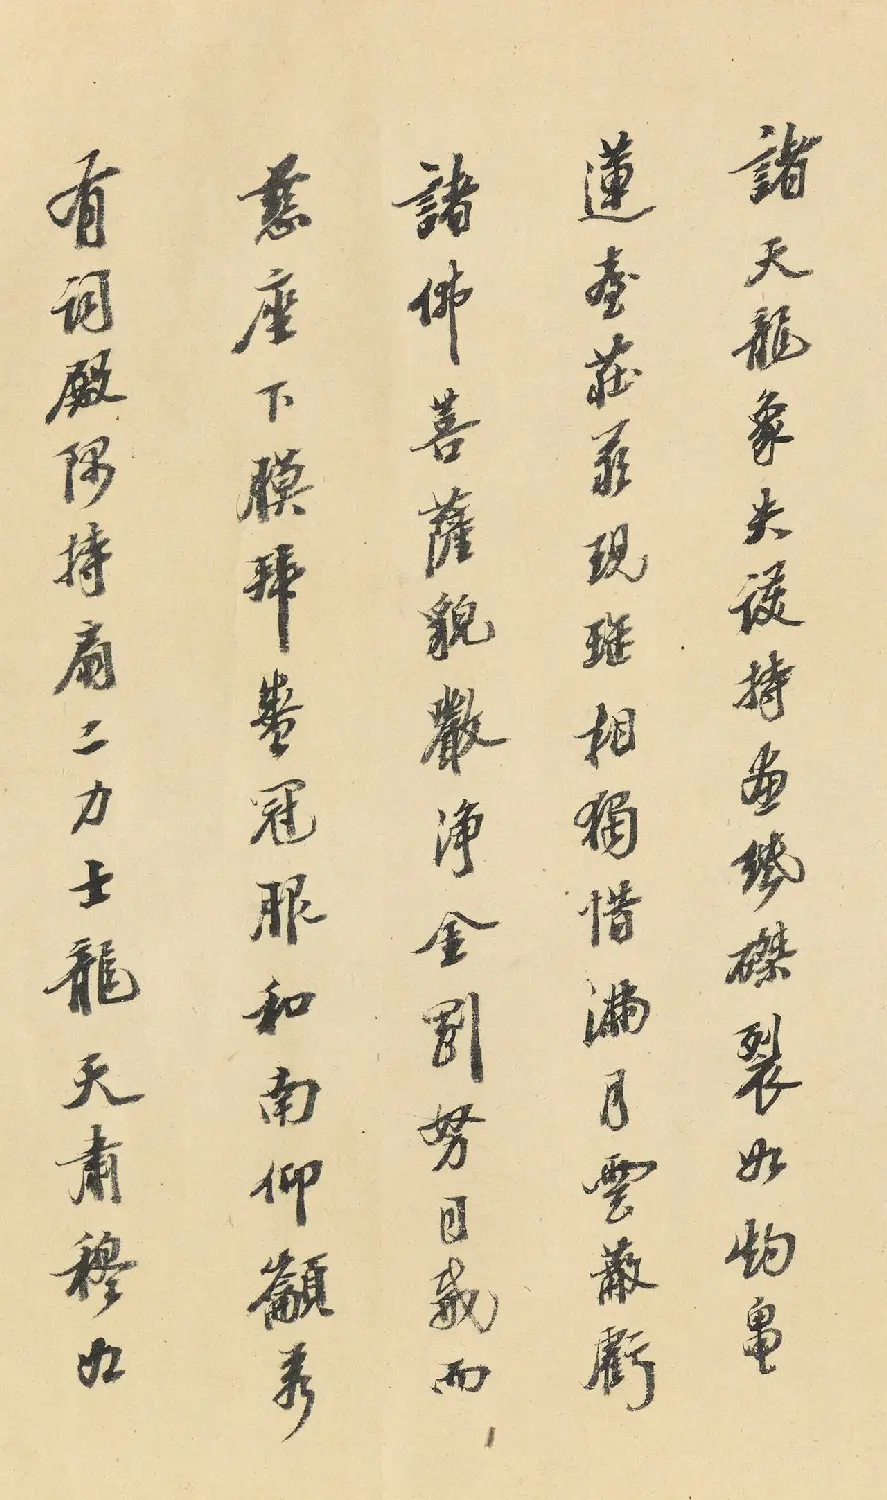 諸天龍象失護持畫絲磔裂如灼龜
蓮臺莊嚴現殊相獨惜滿月雲蔽虧
諸佛菩薩貌嚴淨金剛努目威而
慈座下膜拜盡冠服和南仰籲若
有詞殿隅持扇二力士龍天肅穆如